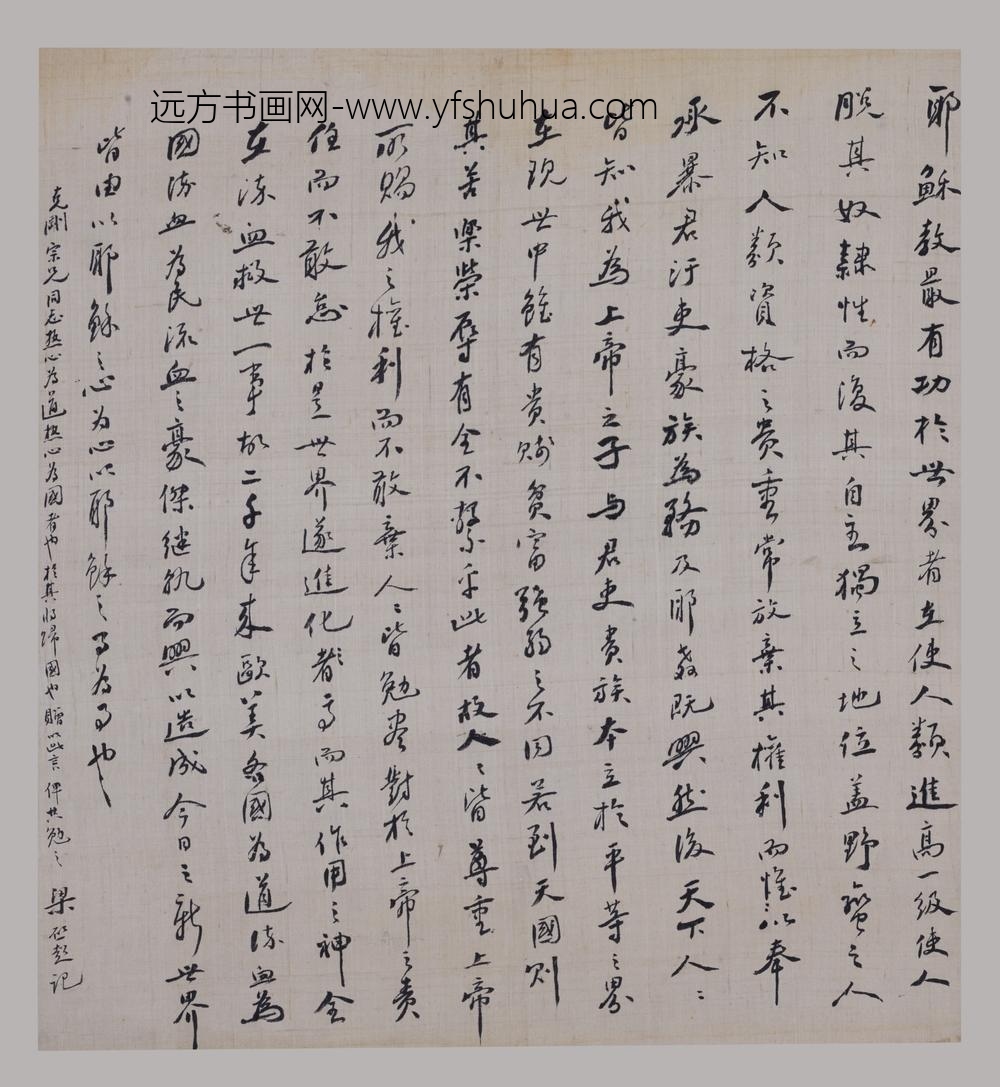 远方书画网-www.yfshuhua.com
耶穌教最有功於世界者在使人類進高一级使人
脫其奴隸性而復其自主獨立之地位盖野蠻之人
不知人類資格之貴重常放棄其權利而惟以奉
承暴君汙吏豪族為務及耶教既興然後天下人〻
皆知我為上帝之子与君吏贵族本立於平等之界
在現世中雖有贵賤貧富強弱之不同若到天國则
其苦樂榮辱有全不繫乎此者故人〻皆尊重上帝
所賜我之權利而不敢棄人〻皆勉盡對於上帝之責
任而不敢怠於是世界遂進化者而其作用之神全
在流血救世一事故二千年来歐美各國為道流血為
國流血為民流血之豪傑继軌而興以造成今日之新世界
皆由以耶穌之心为心以耶穌之事为事也
克剛宗兄同志热心為道热心為國者也於其將歸國也贈以此言俾共勉之 梁啟超记